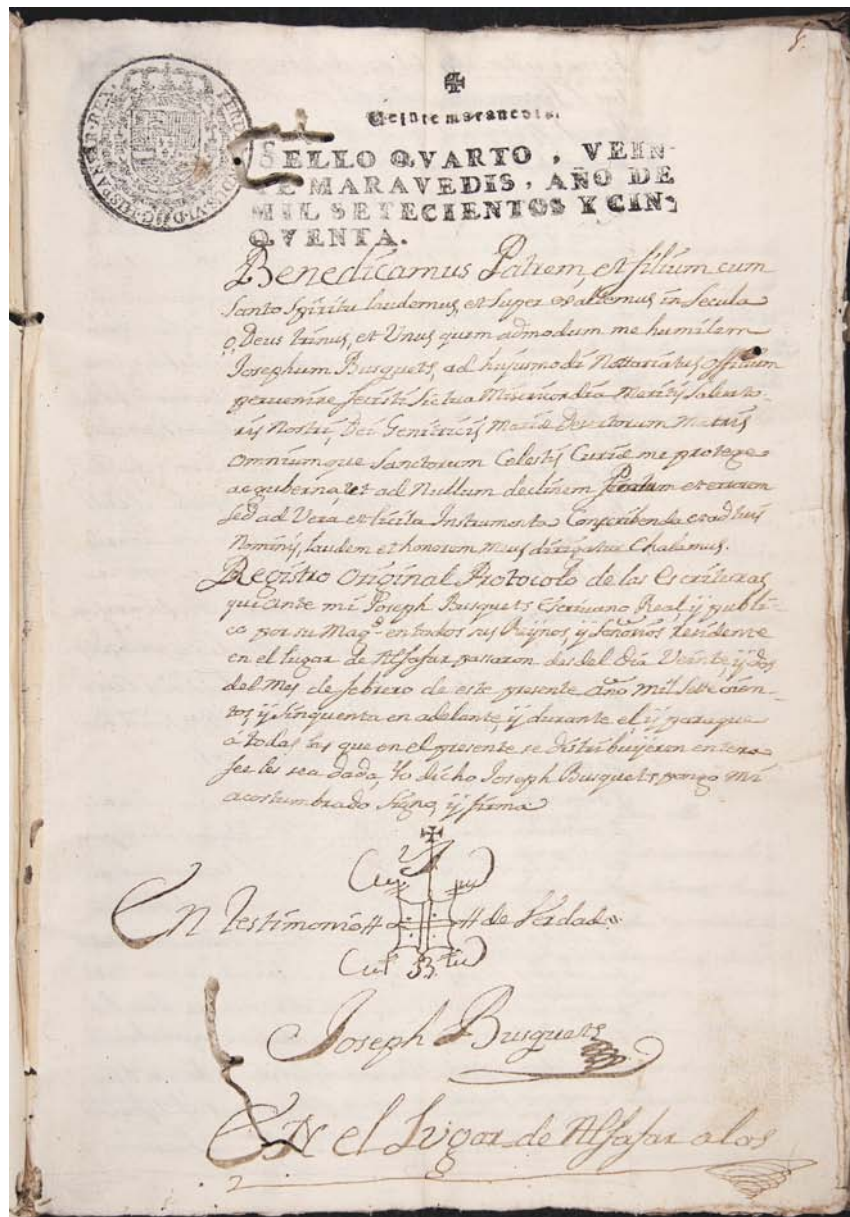 Veinte maravedis.
SELLO QVARTO, VEIN-
TE MARAVEDIS, AÑO DE
MIL SETECIENTOS Y CIN-
QVENTA.
Benedicamus Patrem, et filium cum
Santo Spiritu laudemus, et Super exaltemus in Secula
o, Deus trinus, et Unus quem admodum me humilem
Josephum Busquets, ad hujusmodi Nottariatus Officium
pervenire fecisti sic tua Misericordia Meritis Salvato-
ris Nostri, Dei Genitricis Mariæ Desertorum Matris
Omniumque Sanctorum Celestis Curiæ me protege
ac guberna, ut ad Nullum declinem et errorem
sed ad Vera, et licita Instrumenta Conscribenda et ad tui
Nominis, laudem et honorem meus dirigatur Chalamus.
Registro Original Protocolo de las Escrituras
qui ante mi Joseph Busquets Escrivano Real, ÿ publi-
co por su Magd. en todos sus Reÿnos, ÿ Señorios Residente
en el lugar de Alfafar passaron desdel dia Veinte, ÿ dos
del Mes de febrero de este presente Año Mil Sette cien-
tos, ÿ Sinquenta en adelante, ÿ durante el, ÿ paraque
á todas las que en el presente se distribuÿeron entera
fee les sea dada, Yo dicho Joseph Busquets pongo mi
acostumbrado Signo, ÿ firma
En Testimonio de Verdad
Joseph Busquets
En el Lugar de Alfafar a los